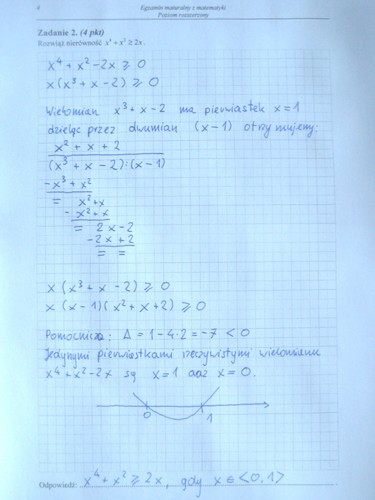 4
Egzamin maturalny z matematyki
Poziom rozszerzony
Zadanie 2. (4 pkt)
Rozwiąż nierówność x⁴ + x² ≥ 2x.
x⁴ + x² - 2x ⩾ 0
x (x³ + x - 2) ⩾ 0
Wielomian x³ + x - 2 ma pierwiastek x = 1
dzieląc przez dwumian (x - 1) otrzymujemy:
x² + x + 2
(x³ + x - 2) : (x - 1)
-x³ + x²
= x² + x
- x² + x
= 2x - 2
-2x + 2
= =
x (x³ + x - 2) ⩾ 0
x (x - 1)(x² + x + 2) ⩾ 0
Pomocnicza: Δ = 1 - 4·2 = -7 < 0
Jedynymi pierwiastkami rzeczywistymi wielomianu
x⁴ + x² - 2x są x = 1 oraz x = 0.
0 1
Odpowiedź: x⁴ + x² ⩾ 2x, gdy x ∈ <0,1>